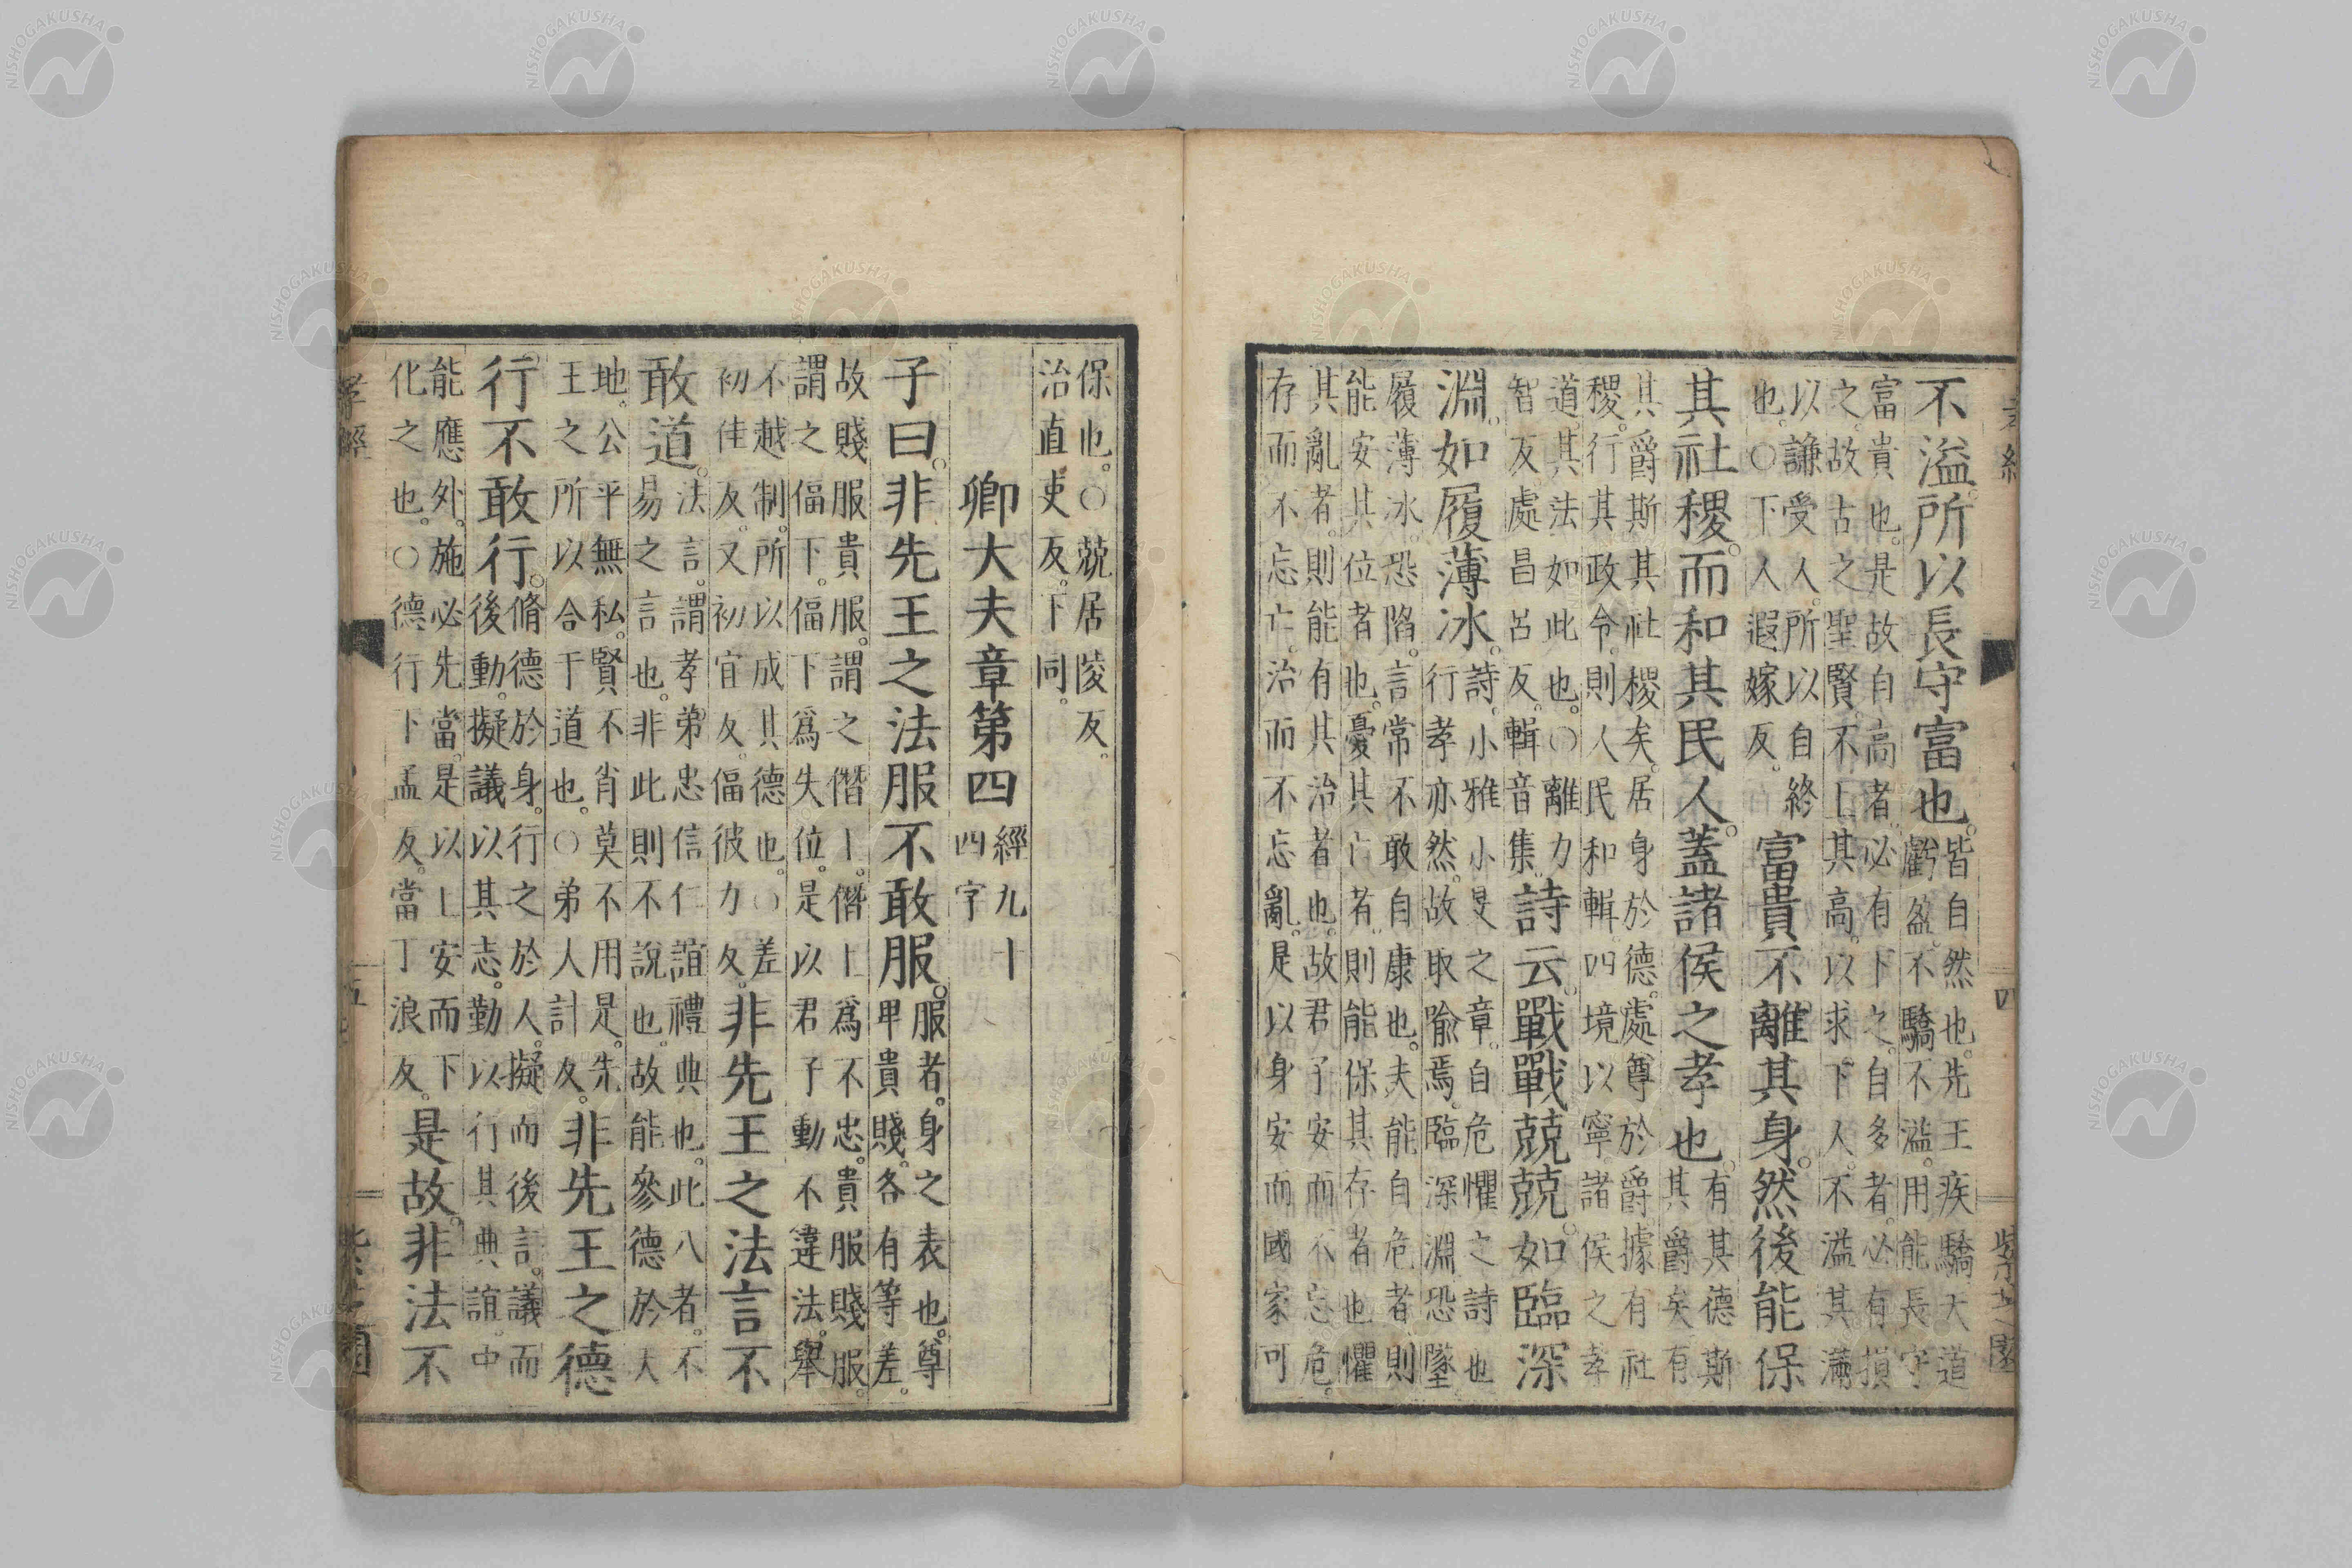 不溢所以長守富也。皆自然也。先王疾驕大道
虧盈。不驕不溢。用能長守
富貴也。是故自高者。必有下之。自多者。必有損
之。故古之聖賢。不上其高。以求下人。不溢其滿
以謙受人。所以自終
也。○下人遐嫁反。富貴不離其身。然後能保
其社稷。而和其民人。蓋諸侯之孝也。有其德斯
其爵矣有
其爵斯其社稷矣。居身於德。處尊於爵。據有社
稷。行其政令。則人民和輯。四境以寧。諸侯之孝
道。其法如此也。○離力
智反。處昌呂反。輯音集。詩云。戰戰兢兢。如臨深
淵。如履薄冰。詩。小雅小旻之章。自危懼之詩也
行孝亦然。故取喻焉。臨深淵恐墜。
履薄冰。恐陷。言常不敢自康也。夫能自危者。則
能安其位者也。憂其亡者。則能保其存者也。懼
其亂者。則能有其治者也。故君子安而不忘危。
存而不忘亡。治而不忘亂。是以身安而國家可
四
保也。○兢居陵反。
治直吏反。下同。
卿大夫章第四 經九十
四字
子曰。非先王之法服不敢服。服者。身之表也。尊
卑貴賤。各有等差。
故賤服貴服。謂之僭上。僭上爲不忠。貴服賤服。
謂之偪下。偪下爲失位。是以君子動不違法。舉
不越制。所以成其德也。○差
初佳反。又初宜反。偪彼力反。非先王之法言不
敢道。法言。謂孝弟忠信仁誼禮典也。此八者。不
易之言也。非此則不說也。故能參德於天
地。公平無私。賢不肖莫不用是。先
王之所以合于道也。○弟人計反。非先王之德
行不敢行。脩德於身。行之於人。擬而後言。議而
後動。擬議以其志。勤以行其典誼。中
能應外。施必先當。是以上安而下
化之也。○德行下孟反。當丁浪反。是故非法不
孝經
五